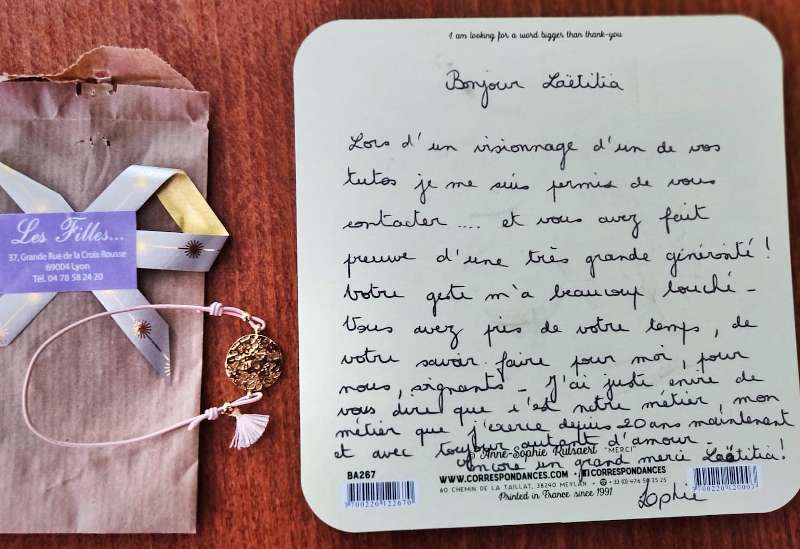 Les Filles...
37, Grande Rue de la Croix Rousse
69004 Lyon
Tél. 04 78 58 24 20
I am looking for a word bigger than thank-you
Bonjour Laëtitia
Lors d'un visionnage d'un de vos
tutos je me suis permis de vous
contacter .... et vous avez fait
preuve d'une très grande générosité !
Votre geste m'a beaucoup touché -
Vous avez pris de votre temps, de
votre savoir faire pour moi, pour
nous, soignants - J'ai juste envie de
vous dire que c'est notre métier, mon
métier que j'exerce depuis 20 ans maintenant
et avec toujours autant d'amour -
© Anne-Sophie Rutsaert "MERCI"
Encore un grand merci Laëtitia !
BA267
WWW.CORRESPONDANCES.COM - CORRESPONDANCES
60 CHEMIN DE LA TAILLAT, 38240 MEYLAN
Printed in France since 1991
Sophie